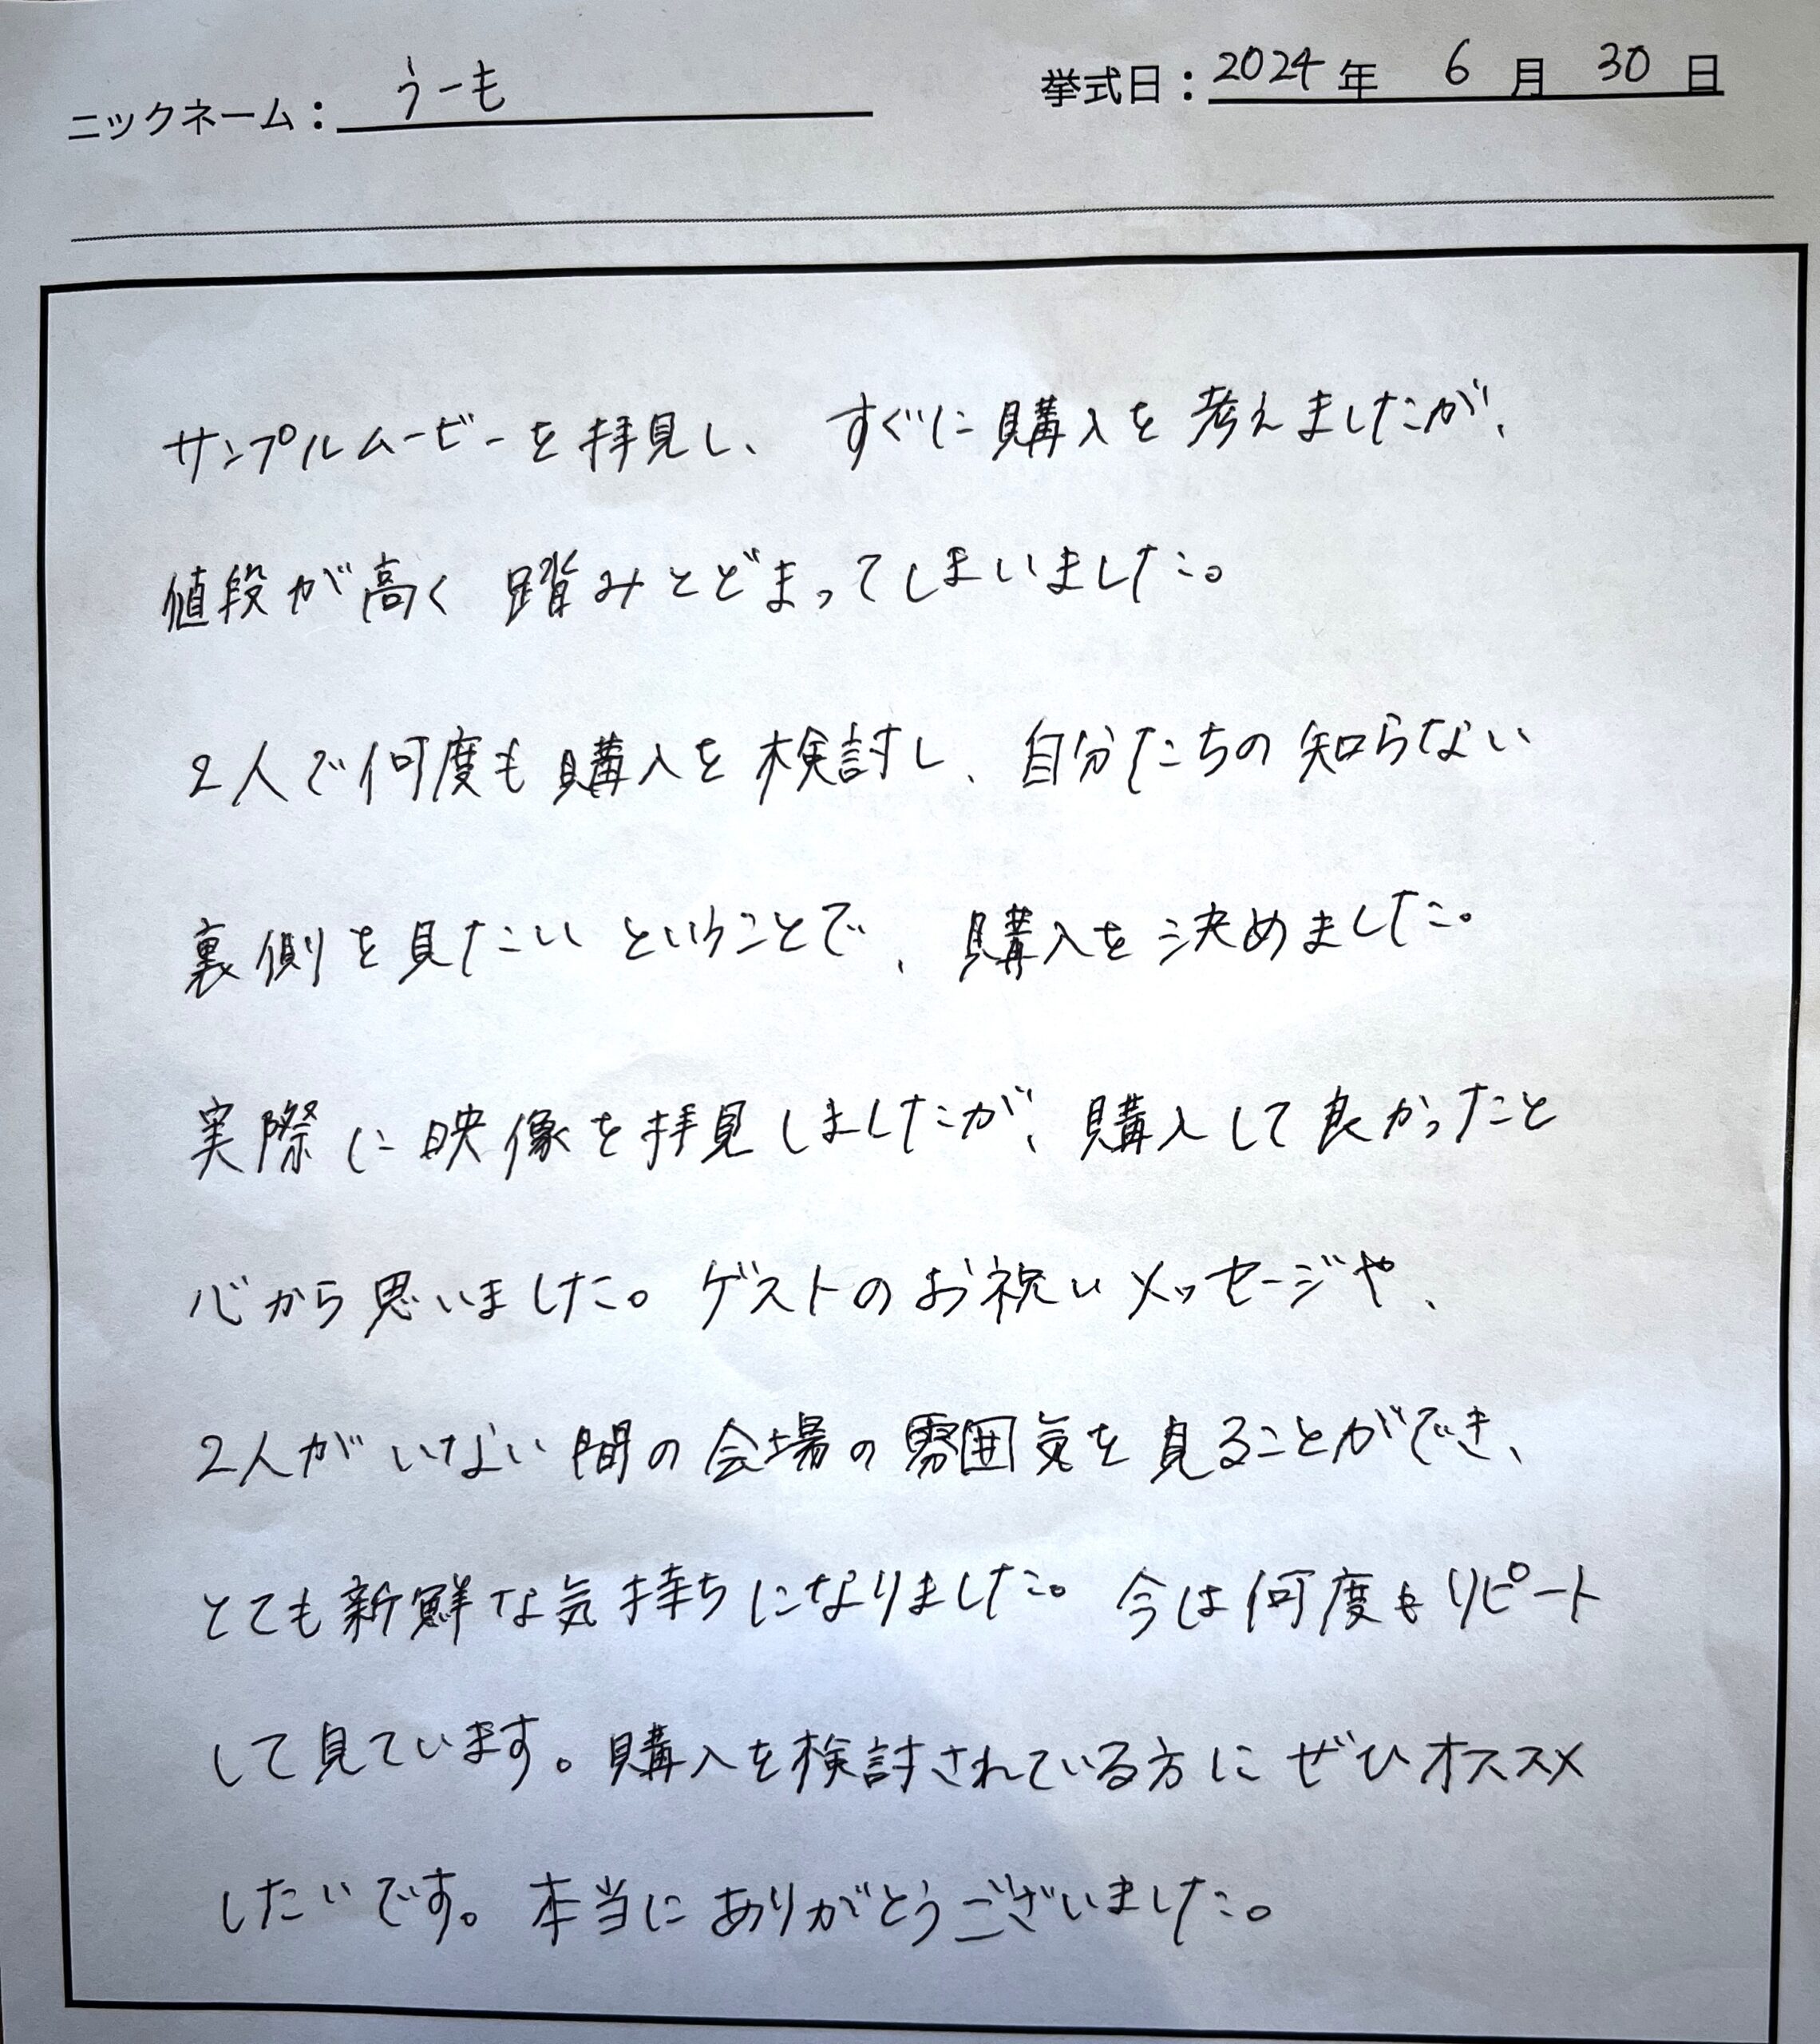 ニックネーム：うーも　挙式日：2024年 6月 30日
サンプルムービーを拝見し、すぐに購入を考えましたが、
値段が高く踏みとどまってしまいました。
2人で何度も購入を検討し、自分たちの知らない
裏側を見たいということで、購入を決めました。
実際に映像を拝見しましたが、購入して良かったと
心から思いました。ゲストのお祝いメッセージや、
2人がいない間の会場の雰囲気を見ることができ、
とても新鮮な気持ちになりました。今は何度もリピート
して見ています。購入を検討されている方にぜひオススメ
したいです。本当にありがとうございました。